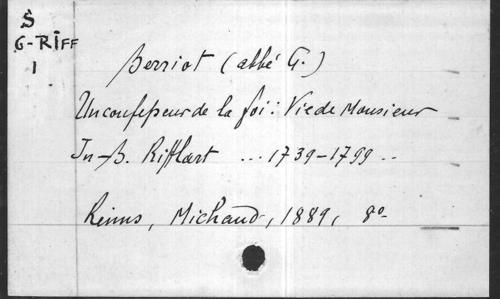 S
G-RIFF
1
Berriot (abbé G.)
Un confesseur de la foi : Vie de Monsieur
J.-B. Rifflart ... 1739-1799 ..
Reims, Michaud, 1889, 8º